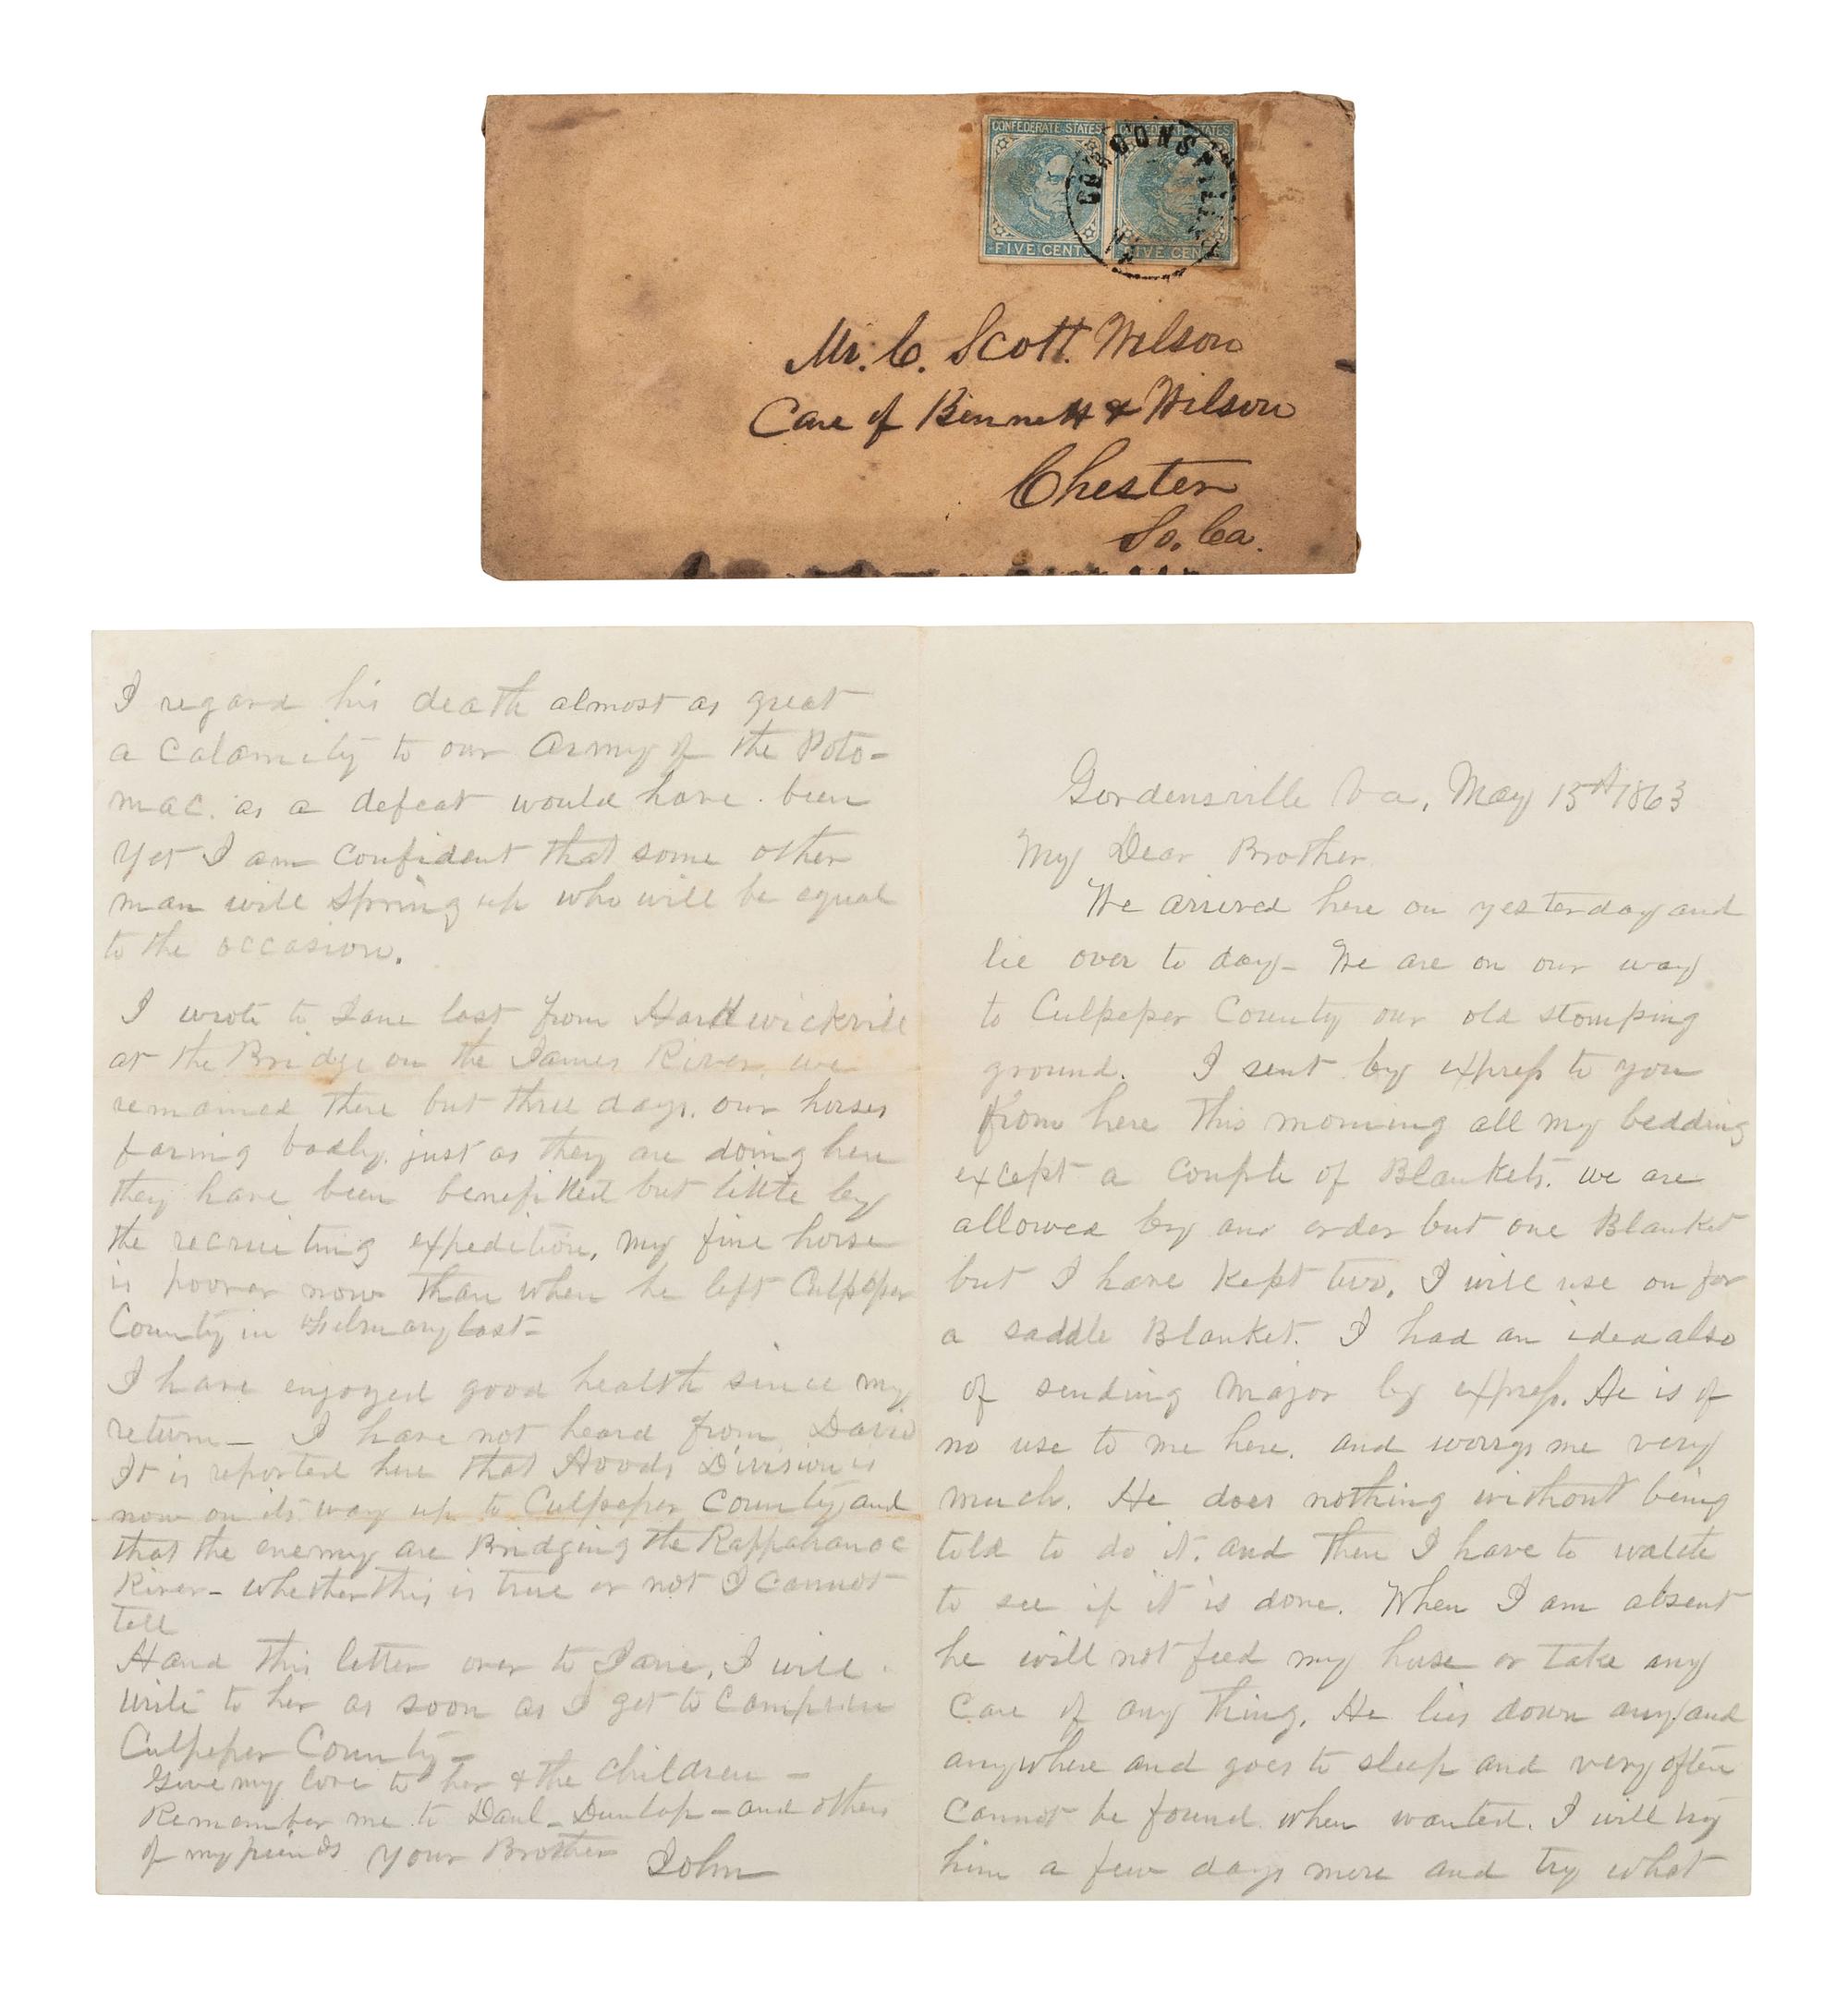 CONFEDERATE STATES
CONFEDERATE STATES
GORDONSVILLE
FIVE CENTS
FIVE CENTS
Mr. C. Scott. Wilson
Care of Bennett & Wilson
Chester
So. Ca.
Gordensville Va, May 15th 1863
My Dear Brother
We arrived here on yesterday and
lie over to day - We are on our way
to Culpeper County our old stomping
ground. I sent by express to you
from here this morning all my bedding
except a couple of Blankets. we are
allowed by our order but one Blanket
but I have kept two. I will use on for
a saddle Blanket. I had an idea also
of sending Major by express. He is of
no use to me here. and worrys me very
much. He does nothing without being
told to do it. and then I have to watch
to see if it is done. When I am absent
he will not feed my horse or take any
care of any thing. He lies down any and
anywhere and goes to sleep and very often
cannot be found when wanted. I will try
him a few days more and try what
I regard his death almost as great
a calamity to our Army of the Poto-
mac. as a defeat would have been
Yet I am confident that some other
man will spring up who will be equal
to the occasion.
I wrote to Jane last from Hardwickville
at the Bridge on the James River. we
remained there but three days. our horses
faring badly. just as they are doing here
they have been benefitted but little by
the recruiting expedition, my fine horse
is poorer now than when he left Culpeper
County in February last -
I have enjoyed good health since my
return - I have not heard from David
It is reported here that Hoods Division is
now on its way up to Culpeper County and
that the enemy are Bridging the Rappahanoc
River - whether this is true or not I cannot
tell
Hand this letter over to Jane. I will
write to her as soon as I get to camp in
Culpeper County -
Give my love to her & the children -
Remember me to Danl - Dunlap - and others
of my friends Your Brother John